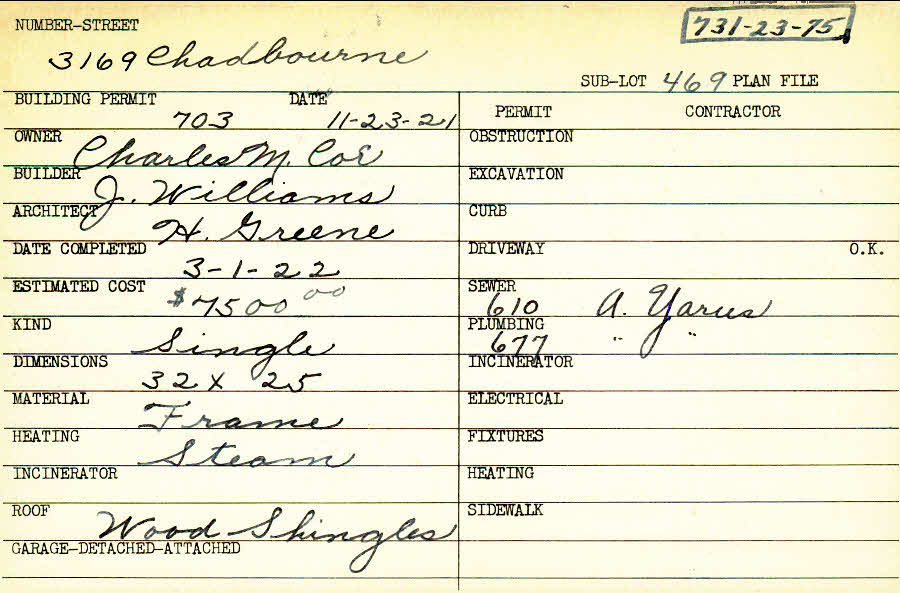 731-23-75
NUMBER-STREET
3169 Chadbourne
SUB-LOT 469 PLAN FILE
BUILDING PERMIT DATE
703 11-23-21
PERMIT CONTRACTOR
OWNER Charles M. Coe
OBSTRUCTION
BUILDER J. Williams
EXCAVATION
ARCHITECT H. Greene
CURB
DATE COMPLETED 3-1-22
DRIVEWAY O.K.
ESTIMATED COST $7500 00
SEWER 610 A. Yarus
KIND Single
PLUMBING 677 " "
DIMENSIONS 32 x 25
INCINERATOR
MATERIAL Frame
ELECTRICAL
HEATING Steam
FIXTURES
INCINERATOR
HEATING
ROOF Wood Shingles
SIDEWALK
GARAGE-DETACHED-ATTACHED